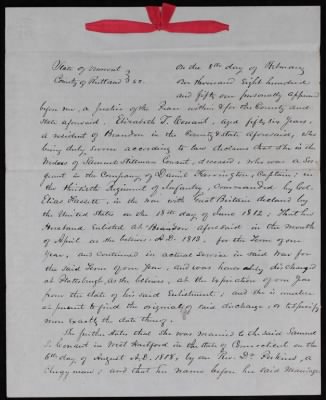 State of Vermont
County of Rutland } ss.
On the 8th day of February
One thousand Eight hundred
and fifty one personally appeared
before me, a Justice of the Peace within & for the County and
State aforesaid, Elizabeth T. Conant, aged fifty six years,
a resident of Brandon in the County & State aforesaid, who
being duly sworn according to law declares that she is the
Widow of Samuel Stillman Conant, deceased, who was a Ser-
geant in the Company of Daniel Farrington, Captain; in
the thirtieth Regiment of Infantry, commanded by Col.
Elias Fassett, in the war with Great Britain declared by
the United States on the 18th day of June 1812; That her
Husband enlisted at Brandon aforesaid in the month
of April as she believes A.D. 1813, for the Term of one
Year, and continued in actual service in said War for
the said Term of one Year, and was honorably discharged
at Plattsburgh as she believes, at the expiration of one Year
from the date of his said Enlistment; and she is unable
at present to find the original of said discharge, or to specify
more exactly the date thereof.
She further states that she was married to the said Samuel
S. Conant in West Hartford in the State of Connecticut on the
6th day of August A.D. 1808, by one Rev. Dr. Perkins, a
Clergyman; and that her name before her said Marriage